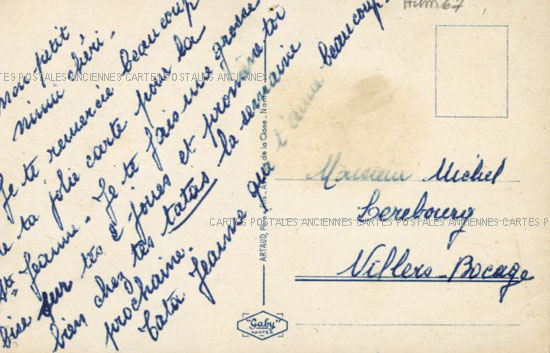 Mon petit
mimi chéri.
Je te remercie beaucoup
de ta jolie carte pour la
Ste Jeanne. Je te fais une grosse
bise sur tes 2 joues et promène toi
bien chez tes tatas la semaine
prochaine.
Tata Jeanne qui t'aime beaucoup.
Monsieur Michel
Lerebourg
Villers-Bocage
"Gaby"
NANTES
CARTES POSTALES ANCIENNES CARTES POSTALES ANCIENNES CARTES POSTALES ANCIENNES
CARTES POSTALES ANCIENNES CARTES POSTALES ANCIENNES CARTES